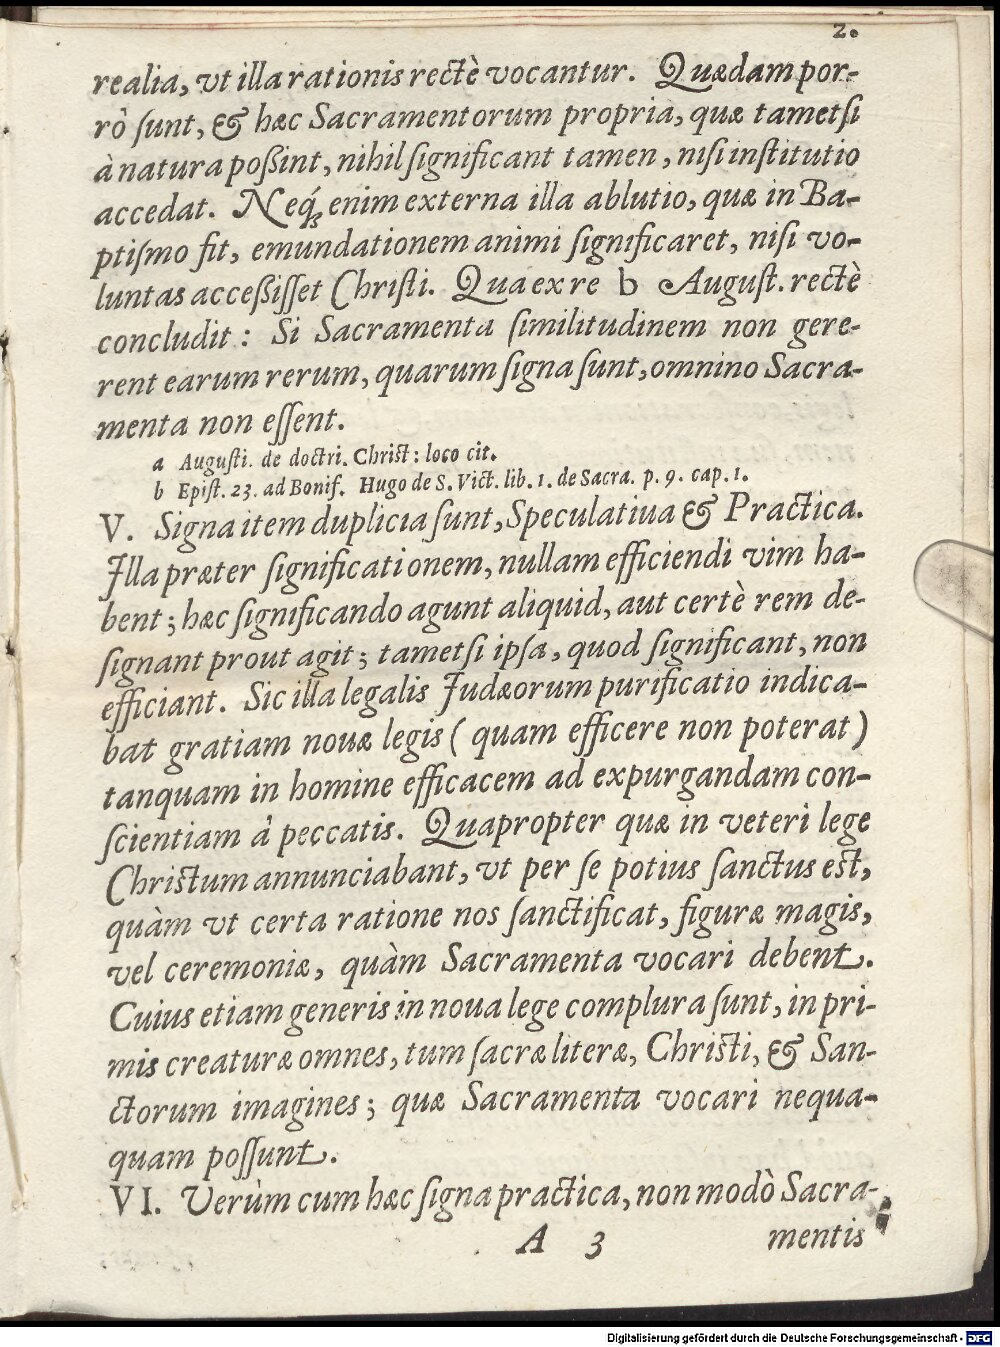 2.
realia, vt illa rationis rectè vocantur. Quædam por-
rò ſunt, & hæc Sacramentorum propria, quæ tametſi
à natura poßint, nihil ſignificant tamen, niſi inſtitutio
accedat. Neq́ꝫ enim externa illa ablutio, quæ in Ba-
ptiſmo fit, emundationem animi ſignificaret, niſi vo-
luntas acceßiſſet Chriſti. Qua ex re b Auguſt. rectè
concludit: Si Sacramenta ſimilitudinem non gere-
rent earum rerum, quarum ſigna ſunt, omnino Sacra-
menta non eſſent.
a Auguſti. de doctri. Chriſt: loco cit.
b Epiſt. 23. ad Bonif. Hugo de S. Vict. lib. 1. de Sacra. p. 9. cap. 1.
V. Signa item duplicia ſunt, Speculatiua & Practica.
Illa præter ſignificationem, nullam efficiendi vim ha-
bent; hæc ſignificando agunt aliquid, aut certè rem de-
ſignant prout agit; tametſi ipſa, quod ſignificant, non
efficiant. Sic illa legalis Iudæorum purificatio indica-
bat gratiam nouæ legis ( quam efficere non poterat )
tanquam in homine efficacem ad expurgandam con-
ſcientiam à peccatis. Quapropter quæ in veteri lege
Chriſtum annunciabant, vt per ſe potius ſanctus eſt,
quàm vt certa ratione nos ſanctificat, figuræ magis,
vel ceremoniæ, quàm Sacramenta vocari debent.
Cuius etiam generis in noua lege complura ſunt, in pri-
mis creaturæ omnes, tum ſacræ literæ, Chriſti, & San-
ctorum imagines; quæ Sacramenta vocari nequa-
quam poſſunt.
VI. Verùm cum hæc ſigna practica, non modò Sacra-
A 3 mentis
Digitalisierung gefördert durch die Deutsche Forschungsgemeinschaft - DFG